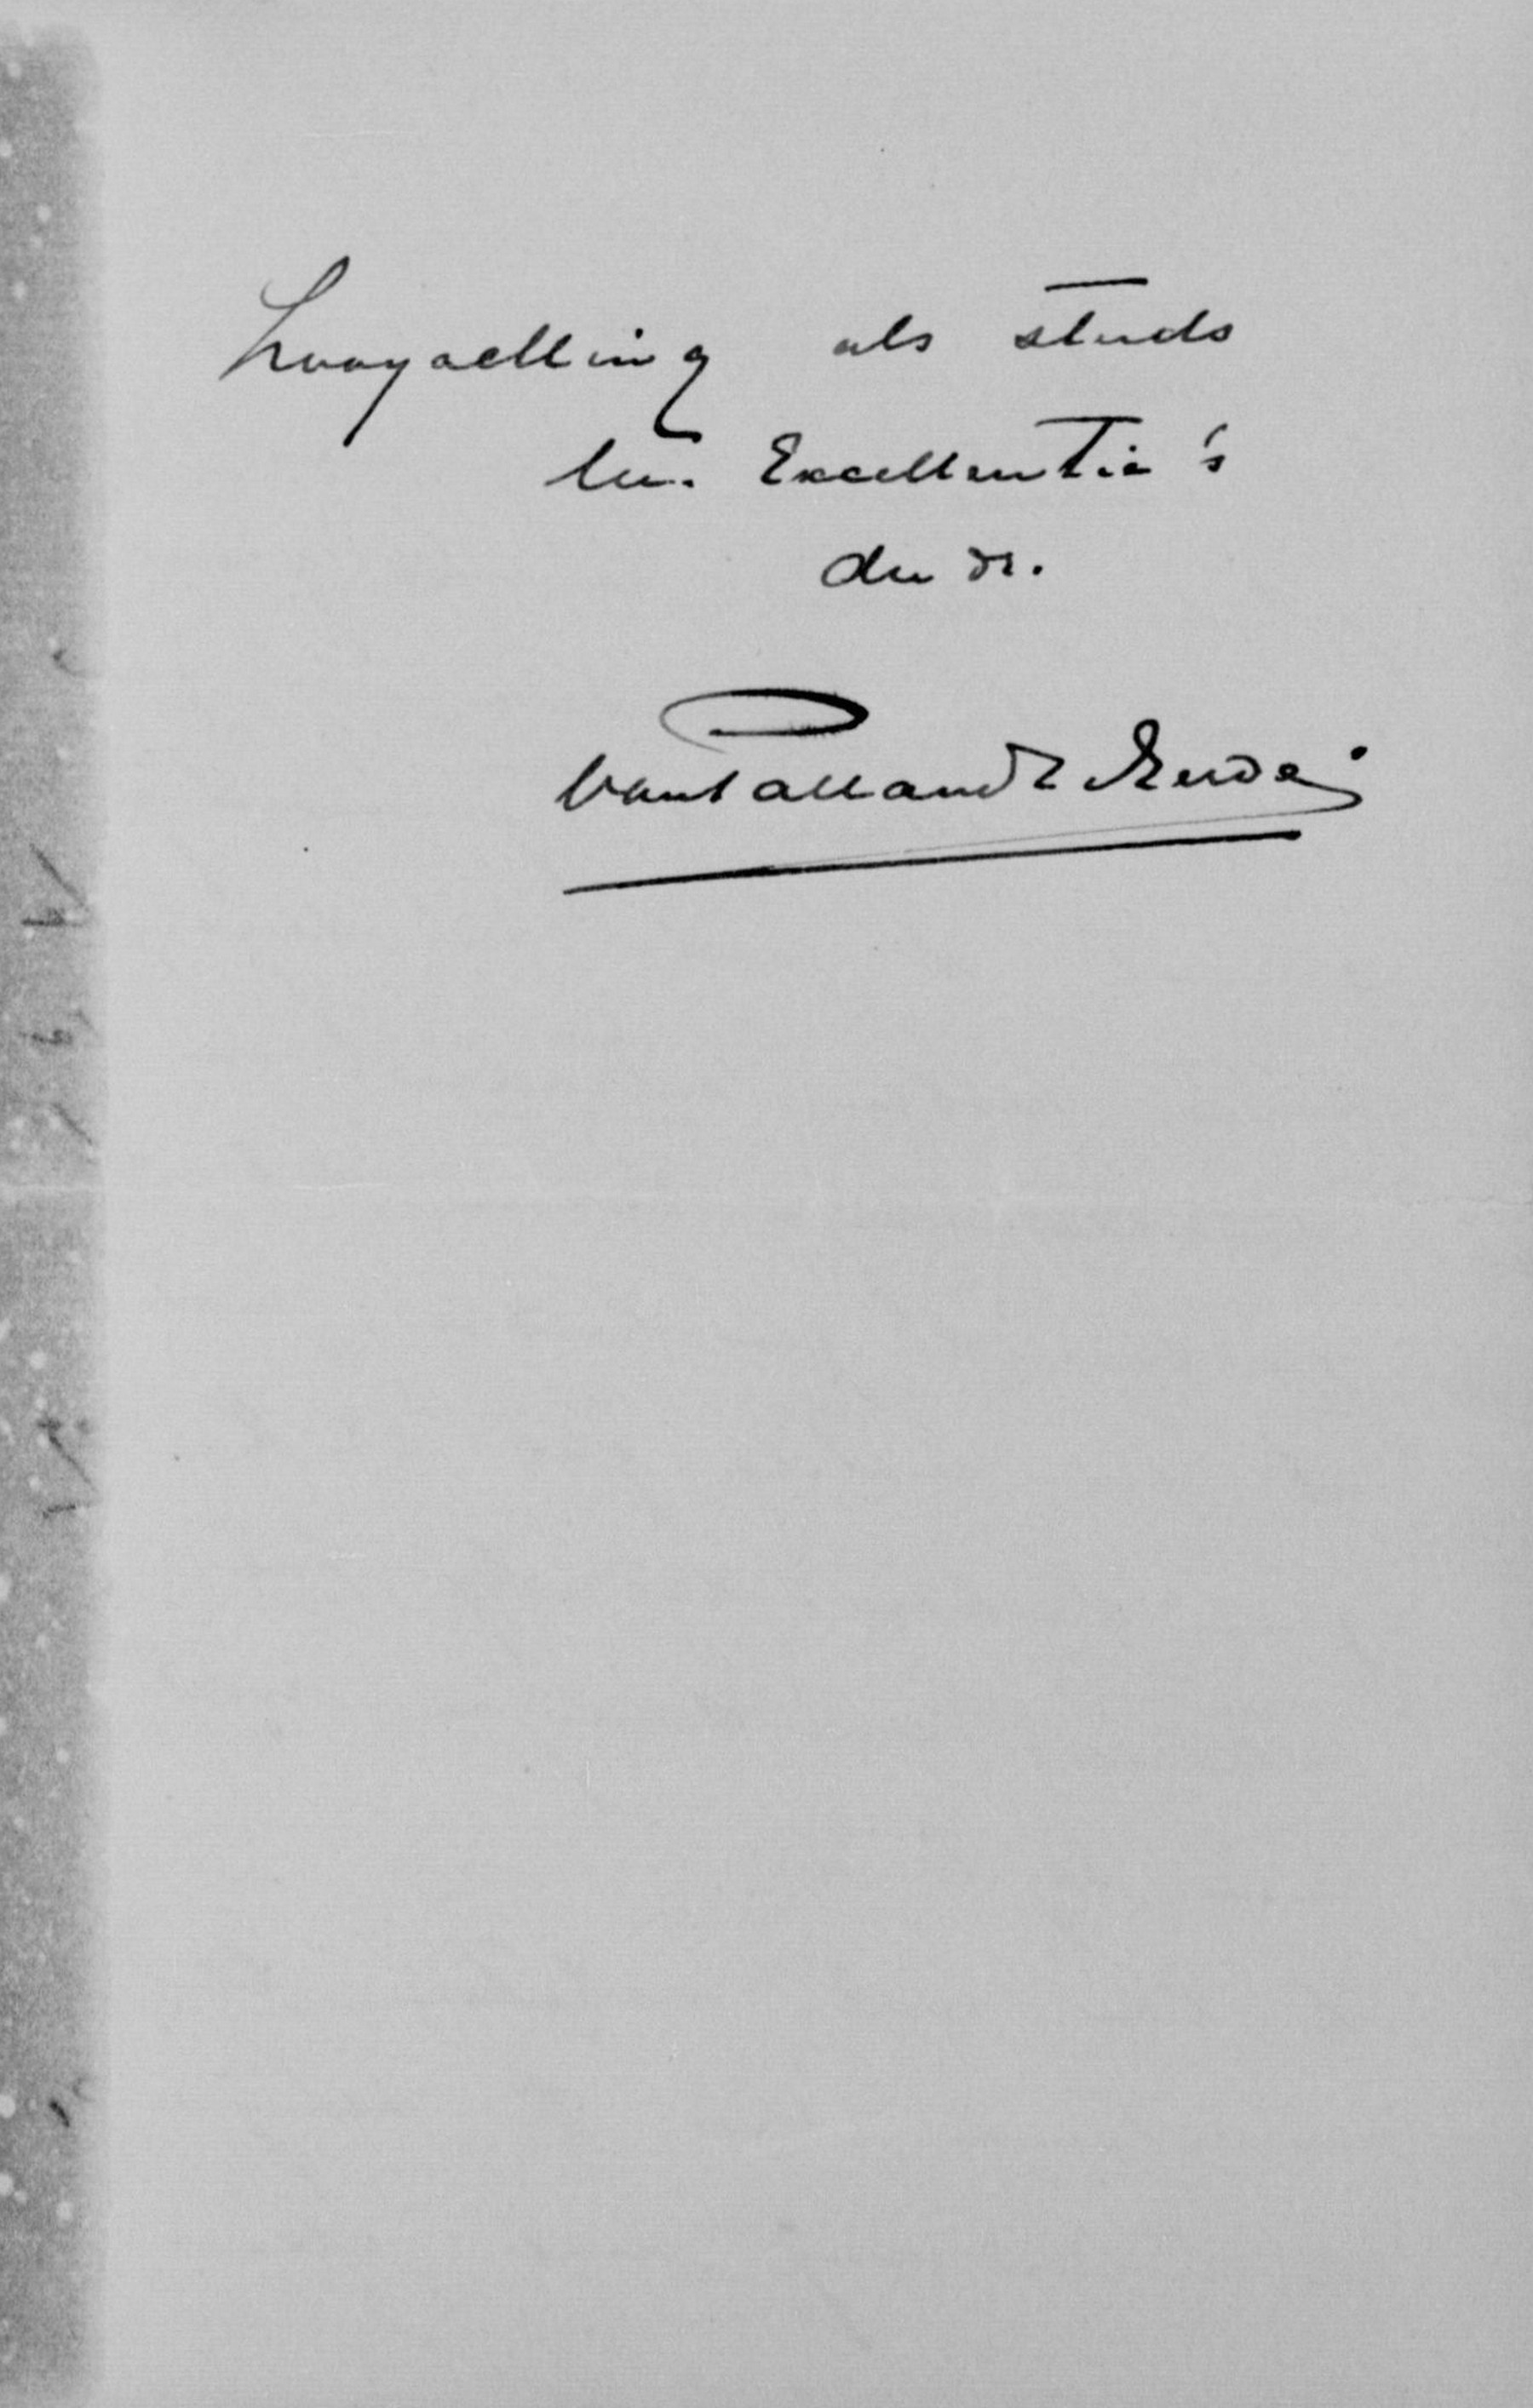 hoogachting als steeds
Uw. Excellentie's
dw dr.
van Pallandt Neerdij